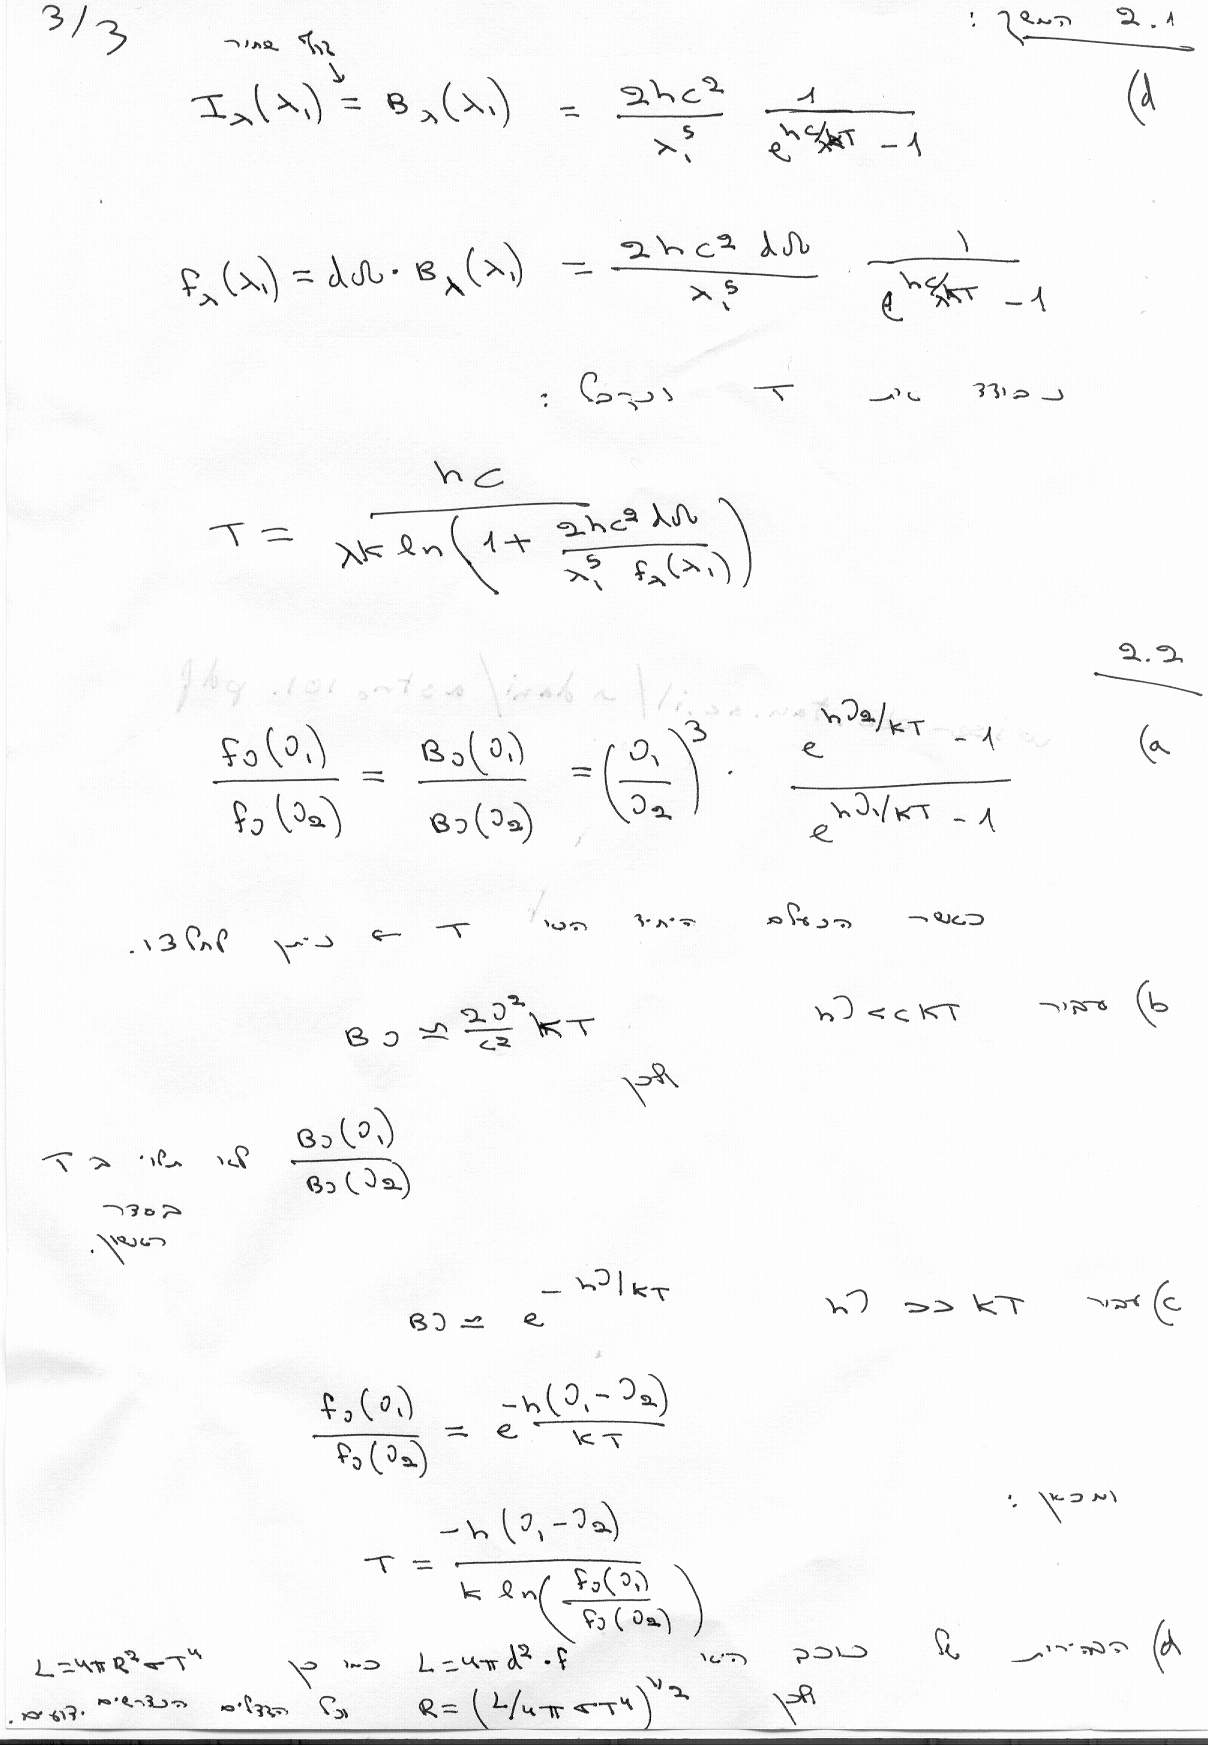 3/3
2.1 המשך :
גוף שחור
d) I_λ(λ₁) = B_λ(λ₁) = 2hc²/λ₁⁵ 1/(e^{hc/λkT} - 1)
f_λ(λ₁) = dΩ · B_λ(λ₁) = 2hc² dΩ/λ₁⁵ · 1/(e^{hc/λkT} - 1)
נבודד את T ונקבל :
T = hc/(λk ln(1 + 2hc² dΩ/(λ₁⁵ f_λ(λ₁))))
2.2
a) f_ν(ν₁)/f_ν(ν₂) = B_ν(ν₁)/B_ν(ν₂) = (ν₁/ν₂)³ · (e^{hν₂/kT} - 1)/(e^{hν₁/kT} - 1)
כאשר הנעלם היחיד הוא T ← ניתן לחלצו.
b) עבור hν << kT
B_ν ≃ 2ν²/c² kT
ולכן
B_ν(ν₁)/B_ν(ν₂) לא תלוי ב T
בסדר
ראשון.
c) עבור hν >> kT
B_ν ≃ e^{-hν/kT}
f_ν(ν₁)/f_ν(ν₂) = e^{-h(ν₁-ν₂)/kT}
ומכאן :
T = -h(ν₁-ν₂)/(k ln(f_ν(ν₁)/f_ν(ν₂)))
d) הבהירות של כוכב היא L=4πd²·f כמו כן L=4πR²σT⁴
ולכן R = (L/4πσT⁴)^{1/2} וכל הגדלים הנדרשים ידועים.